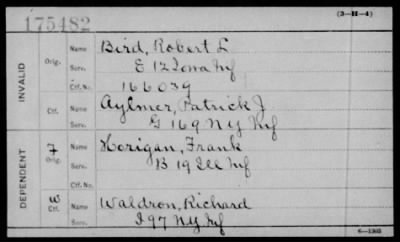 (3—H—4)
175482
INVALID
Orig. Name Bird, Robert L
Serv. E 12 Iowa Inf
Ctf. No. 166039
Ctf. Name Aylmer, Patrick J
Serv. G 169 NY Inf
DEPENDENT
F Orig. Name Horigan, Frank
Serv. B 19 Ill Inf
Ctf. No.
W Ctf. Name Waldron, Richard
Serv. I 97 NY Inf
6—1303